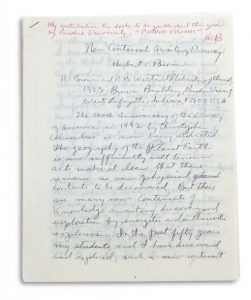 My contribution to book to be published this year
by Purdue University, "PURDUE VISIONS."
HCB
New Continent Awaiting Discovery
Herbert C. Brown
H. C. Brown and R. B. Wetherill Laboratory of Chemistry
1393 Brown Building, Purdue University
West Lafayette, Indiana 47907, USA
The 500th Anniversary of the discovery
of America in 1492 by Christopher
Columbus is now being celebrated.
The geography of the Planet Earth
is now sufficiently well known
as to make it clear that there
remains no new physical
continents to be discovered. But there
are many new Continents of
Knowledge awaiting discovery and
exploration by energetic enthusiastic
explorers. In the past fifty years
my students and I have discovered
and explored such a new continent